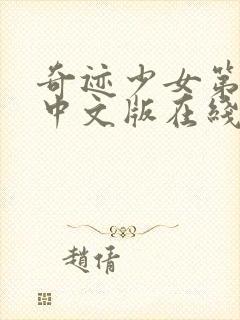 奇迹少女第
中文版在线
趙倩